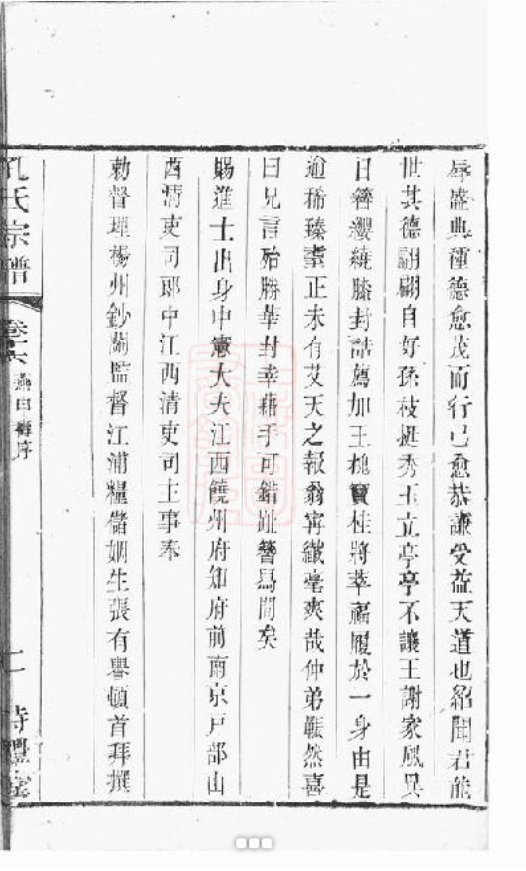 辱盛典種德愈茂而行已愈恭謙受益天道也紹聞君能
世其德翩翩自好孫枝挺秀玉立亭亭不讓王謝家風異
日簪纓繞膝封誥薦加王槐竇桂將萃福履於一身由是
逾稀臻耋正未有艾天之報翁寧纖毫爽哉仲弟囅然喜
曰兄言殆勝華封幸藉手可錯趾簪舄間矣
賜進士出身中憲大夫江西饒州府知府前南京戸部山
西清吏司郎中江西清吏司主事奉
勅督理楊州鈔關監督江浦糧儲姻生張有譽頓首拜撰
孔氏宗譜 卷六 燕口壽序 二 詩禮堂